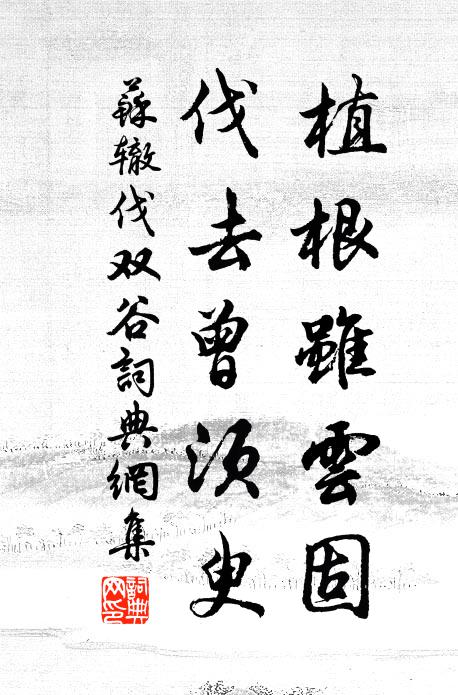 植根雖雲固
伐去曾須臾
蘇轍伐双谷詞典網集
詞典
网印